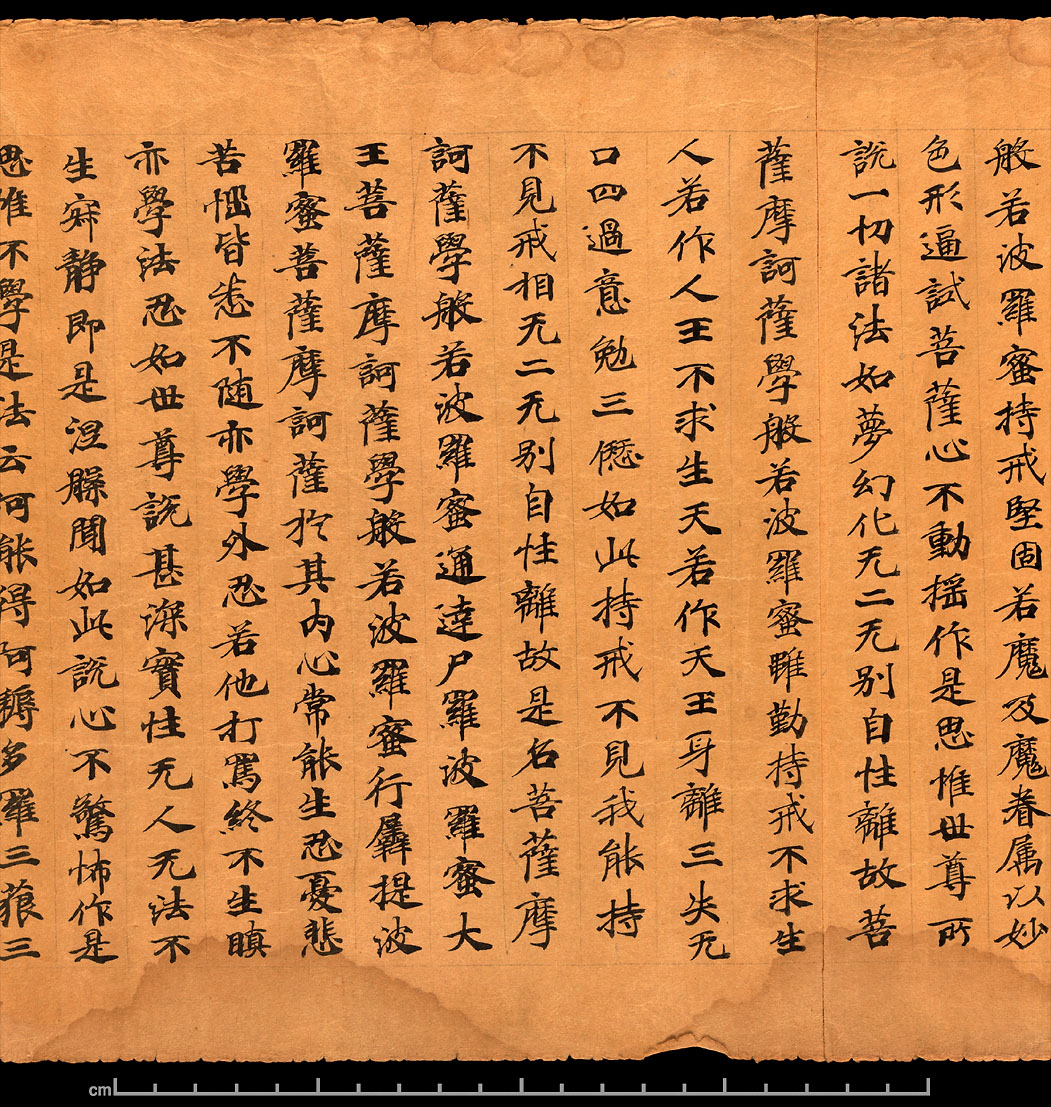 般若波羅蜜持戒堅固若魔及魔眷属以妙
色形逼試菩薩心不動揺作是思惟世尊所
說一切諸法如夢幻化无二无别自性離故菩
薩摩訶薩學般若波羅蜜雖勤持戒不求生
人若作人王不求生天若作天王身離三失无
口四過意勉三㒚如此持戒不見我能持
不見戒相无二无别自性離故是名菩薩摩
訶薩學般若波羅蜜通達尸羅波羅蜜大
王菩薩摩訶薩學般若波羅蜜行羼提波
羅蜜菩薩摩訶薩扵其内心常能生忍憂悲
苦惱皆悉不随亦學外忍若他打罵終不生瞋
亦學法忍如世尊說甚深實性无人无法不
生寂静即是涅槃聞如此說心不驚怖作是
思惟不學是法云何能得阿耨多羅三藐三
cm